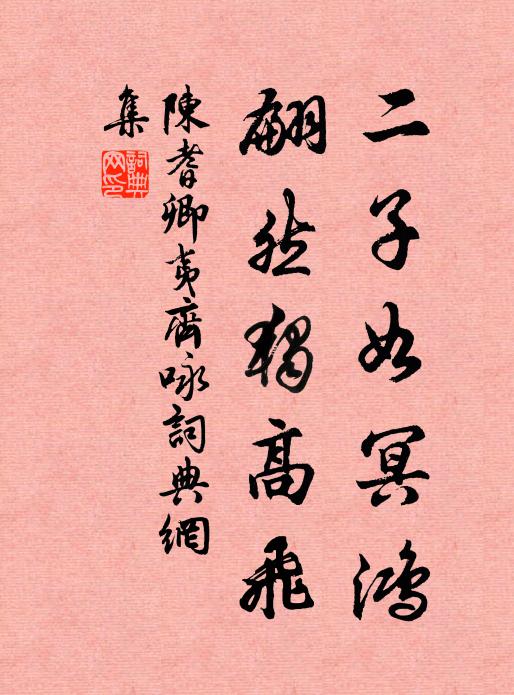 二子如冥鴻
翩然獨高飛
陳耆卿夷齊咏詞典網
集
詞典網印